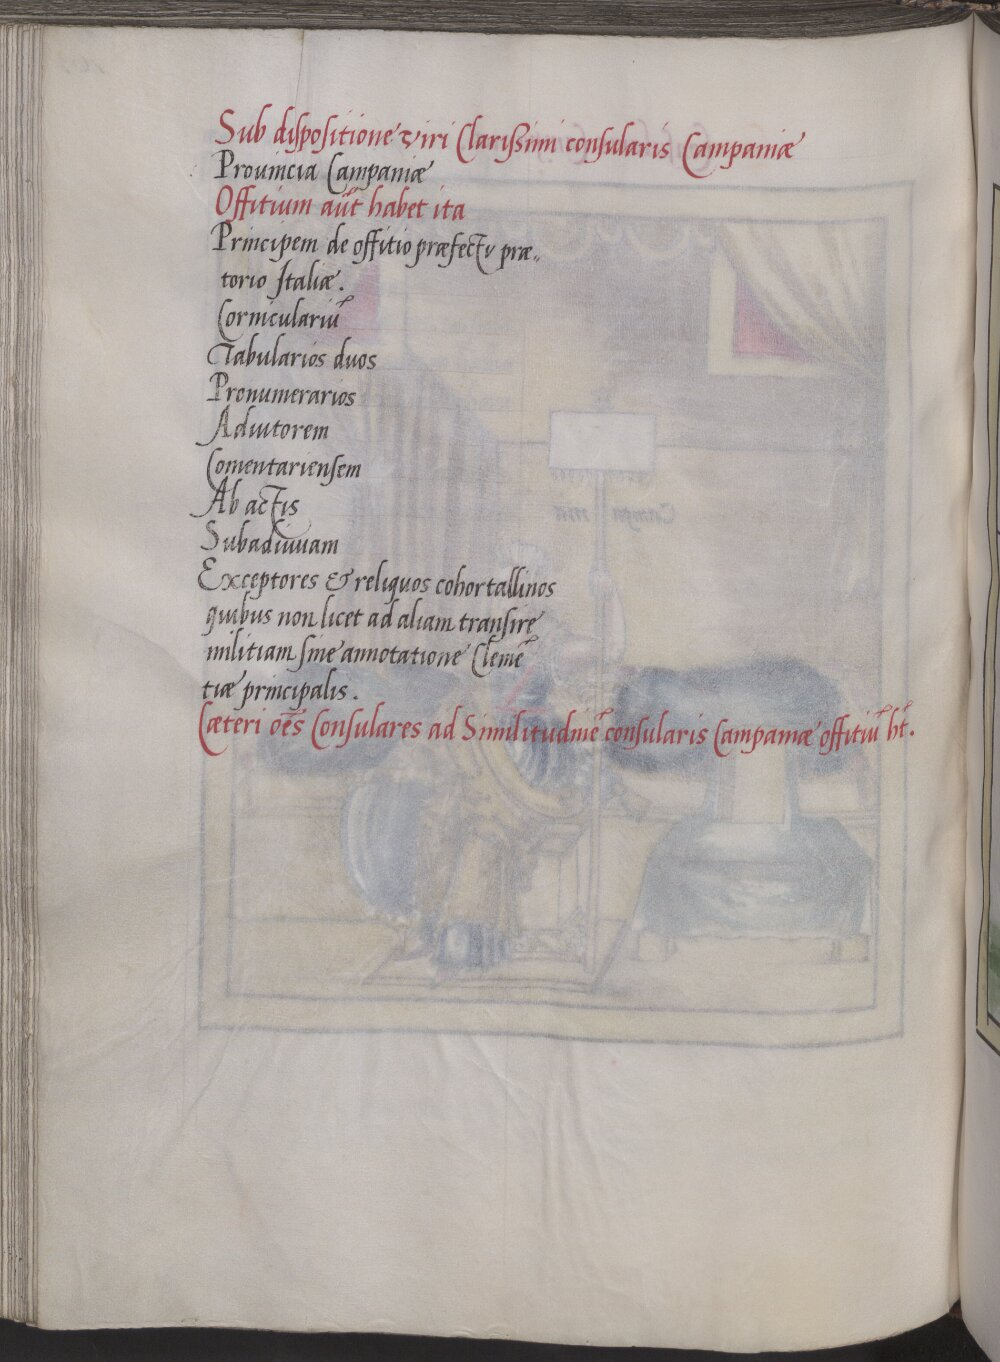 Sub dispositione viri Clarißimi consularis Campaniæ
Prouincia Campaniæ
Offitium aūt habet ita
Principem de offitio præfectu præ„
torio Italiæ.
Corniculariū
Tabularios duos
Pronumerarios
Adiutorem
Comentariensem
Ab actis
Subadiuuam
Exceptores & reliquos cohortallinos
quibus non licet ad aliam transire
militiam sine annotatione Clemē
tiæ principalis.
Cæteri oēs Consulares ad Similitudinē consularis Campaniæ offitiū ht̄.